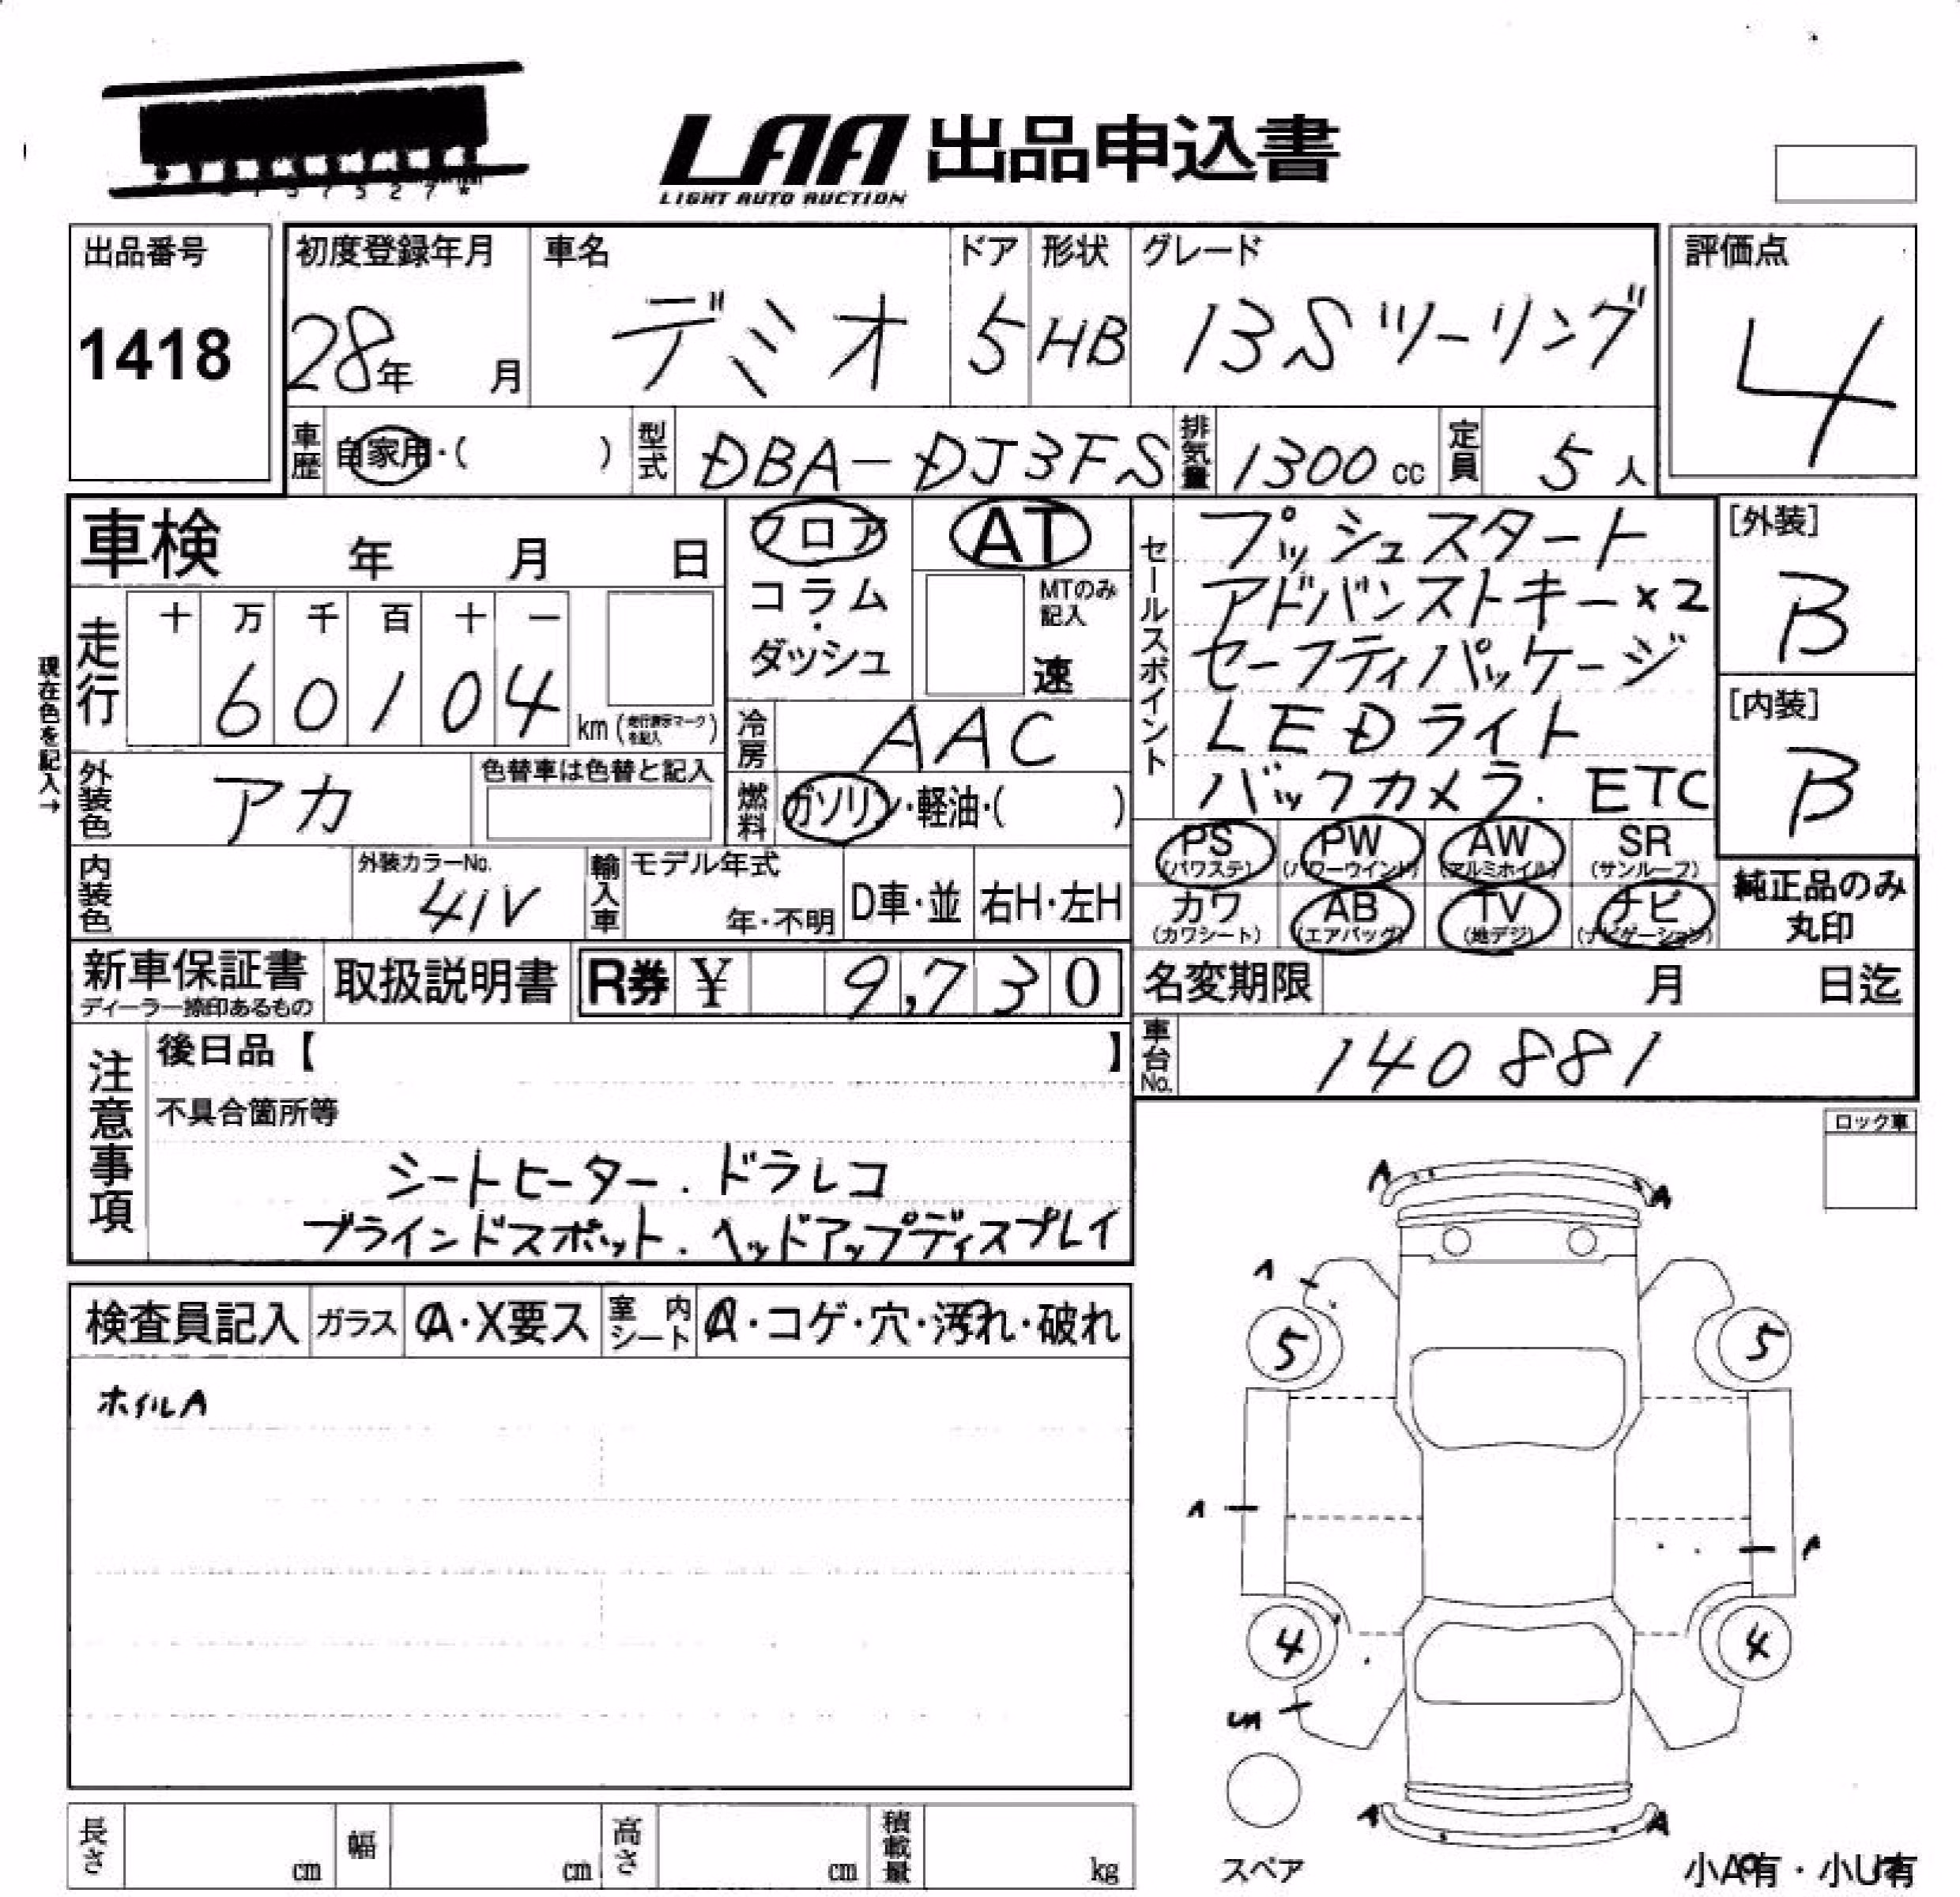 LAA 出品申込書
LIGHT AUTO AUCTION
出品番号
1418
初度登録年月
28年 月
車名
デミオ
ドア
5
形状
HB
グレード
13Sツーリング
評価点
4
車歴 自家用・( )
型式 DBA-DJ3FS
排気量 1300 cc
定員 5 人
車検 年 月 日
フロア
コラム
・
ダッシュ
AT
MTのみ
記入
速
セールスポイント
プッシュスタート
アドバンストキー×2
セーフティパッケージ
LEDライト
バックカメラ. ETC
[外装]
B
[内装]
B
現在色を記入→
走行
十 万 千 百 十 一
6 0 1 0 4
km (走行表示マークを記入)
冷房 AAC
外装色 アカ
色替車は色替と記入
燃料 ガソリン・軽油・( )
PS (パワステ)
PW (パワーウインド)
AW (アルミホイル)
SR (サンルーフ)
カワ (カワシート)
AB (エアバッグ)
TV (地デジ)
ナビ (ナビゲーション)
純正品のみ
丸印
内装色
外装カラーNo.
41V
輸入車 モデル年式
年・不明
D車・並
右H・左H
新車保証書
ディーラー捺印あるもの
取扱説明書
R券 ¥ 9,730
名変期限 月 日迄
車台No. 140881
注意事項
後日品【 】
不具合箇所等
シートヒーター. ドラレコ
ブラインドスポット. ヘッドアップディスプレイ
ロック車
検査員記入
ガラス A・X要ス
室内シート A・コゲ・穴・汚れ・破れ
ホイルA
A
A
A
5
5
A
A
4
4
A
A
スペア
長さ cm
幅 cm
高さ cm
積載量 kg
小A有・小U有